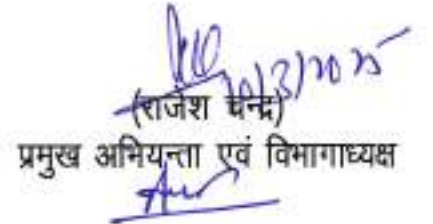 20/3/2025
(राजेश चन्द्र)
प्रमुख अभियन्ता एवं विभागाध्यक्ष